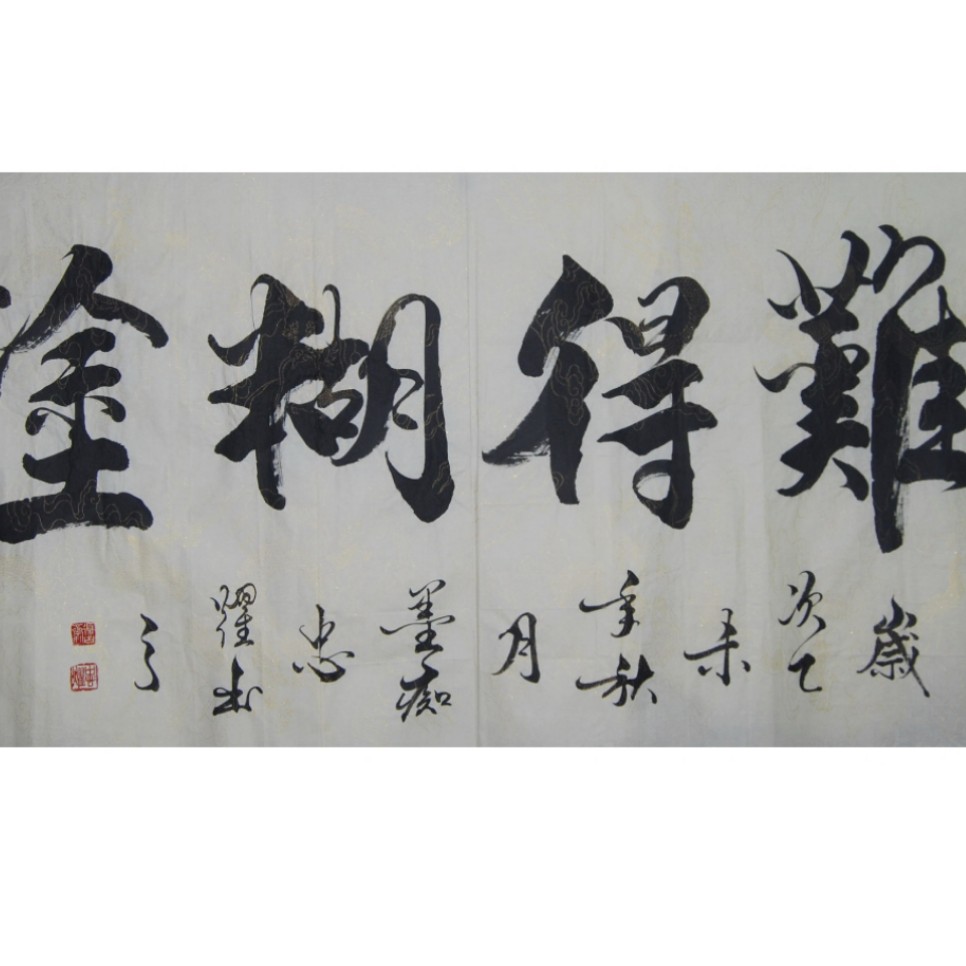 難得糊塗
歲次乙未年秋月墨痴忠躍书之